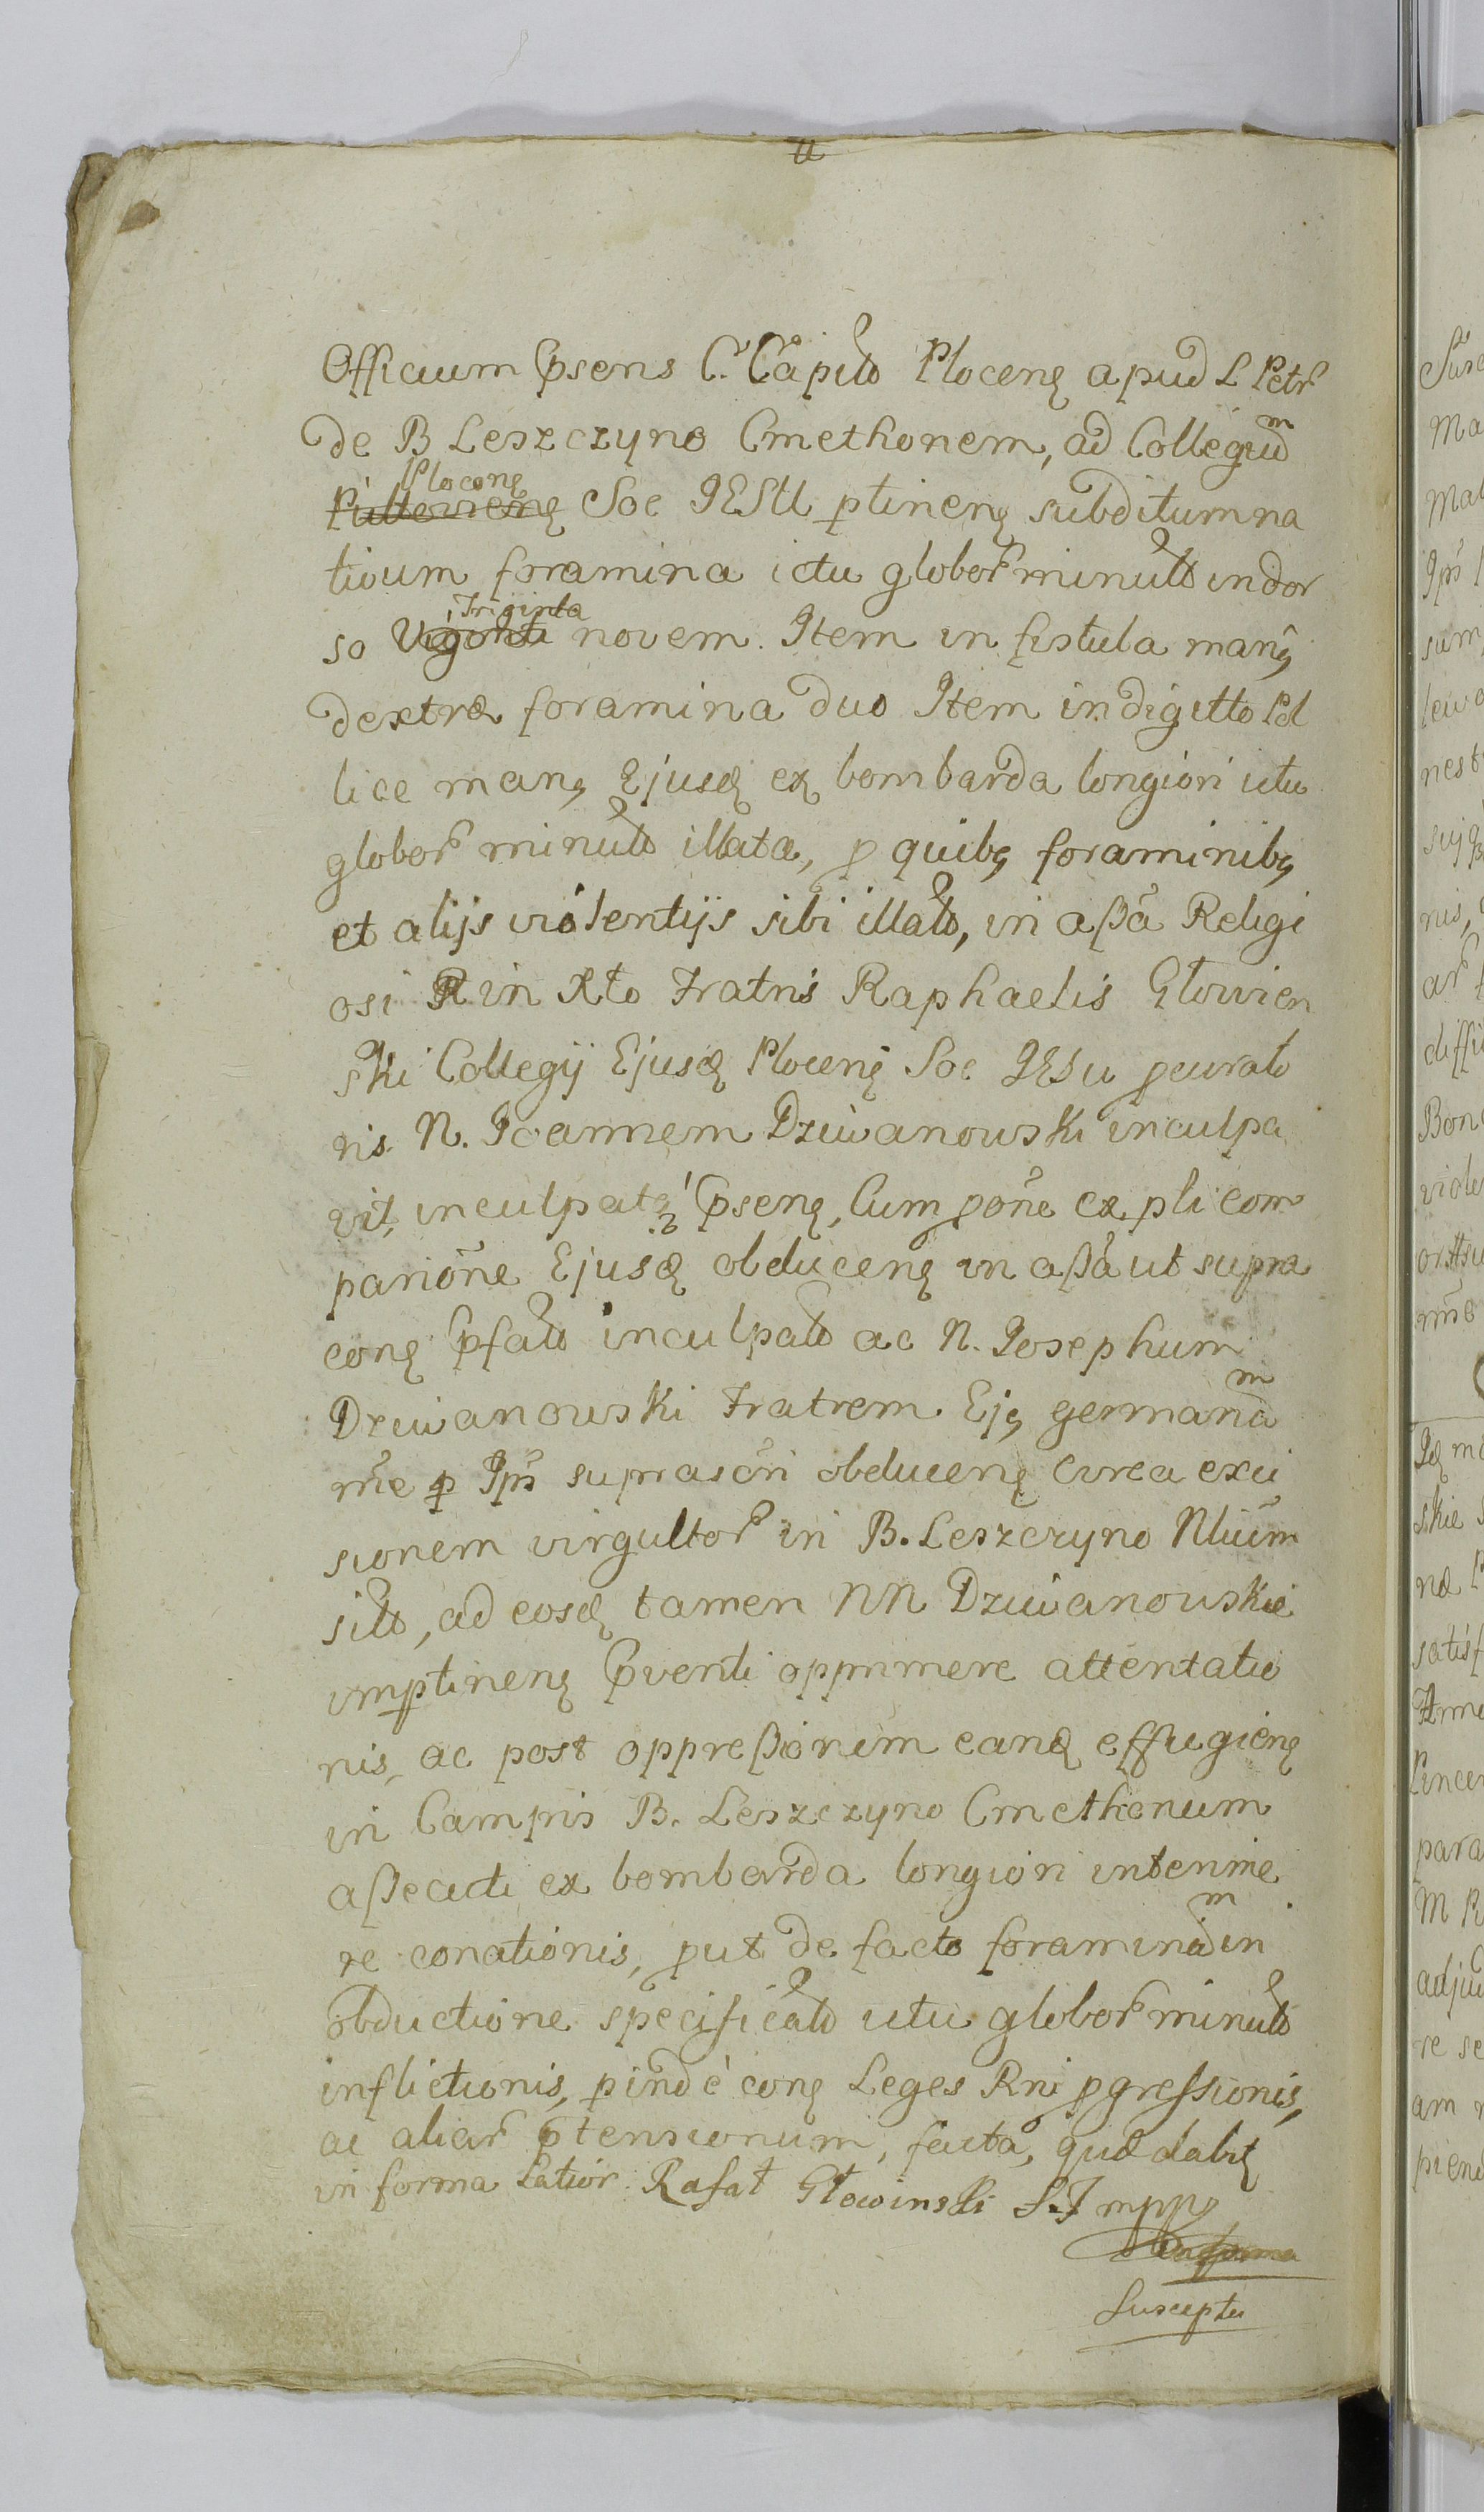 Officium Cpsens C. Capitlo Plocenę apud L Petr
de B Leszczyno Cmethonem, ad Collegium
Plocenę Soc IESU ptinenę subditum na
tivum foramina ictu globor minutlo in dor
so Triginta novem. Item in fistula manȩ
dextræ foramina duo Item in digitto Pol
lice manȩ Ejusdę ex bombarda longiori ictu
globor minutlo illata, p quibȩ foraminibȩ
et alijs violentijs sibi illatlo, in aßa Religi
osi R in Xto Fratris Raphaelis Głowien
ski Collegij Ejusdę Plocenę Soc IESu pcurato
ris N. Joannem Dziwanowski inculpa
vit, inculpatę Cpsenę, Cum pone ex pli com
parione Ejusdę obducenę in aßa ut supra
conę Cpfatlo inculpatlo ac N. Josephum
Dziwanowski Fratrem Ejȩ germanum
rne p Ips suprascri obducenę circa exci
sionem virgultor in B. Leszczyno Nlium
sitlo, ad eosdę tamen NN Dziwanowskie
imptinenę Cpventi opprimere attentatio
nis, ac post oppreßionem eandę effugienę
in Campis B. Leszczyno Cmethonum
aßecuti ex bombarda longiori interime
re conationis, put de facto foraminum in
obductione specificatlo ictu globor minutlo
inflictionis, pinde conę Leges Rni pgressionis,
ac aliar ptensionum, facta, quæ dabit
in forma Latior. Rafał Głowinski S.J mpp
Susceptu